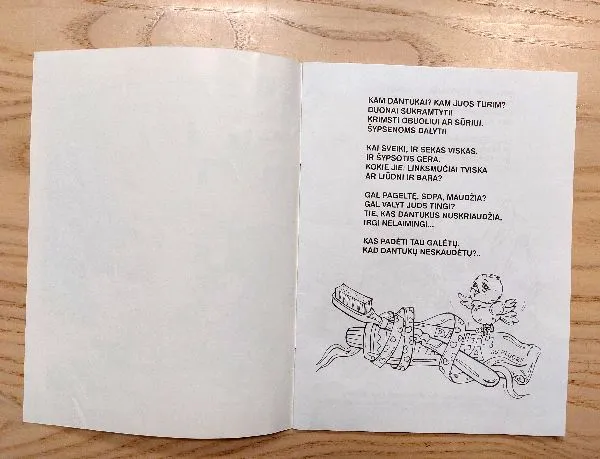 KAM DANTUKAI? KAM JUOS TURIM?
DUONAI SUKRAMTYTI!
KRIMSTI OBUOLIUI AR SŪRIUI,
ŠYPSENOMS DALYTI!
KAI SVEIKI, IR SEKAS VISKAS,
IR ŠYPSOTIS GERA.
KOKIE JIE, LINKSMUČIAI TVISKA
AR LIŪDNI IR BARA?
GAL PAGELTĘ, SOPA, MAUDŽIA?
GAL VALYT JUOS TINGI?
TIE, KAS DANTUKUS NUSKRIAUDŽIA,
IRGI NELAIMINGI...
KAS PADĖTI TAU GALĖTŲ,
KAD DANTUKŲ NESKAUDĖTŲ?..